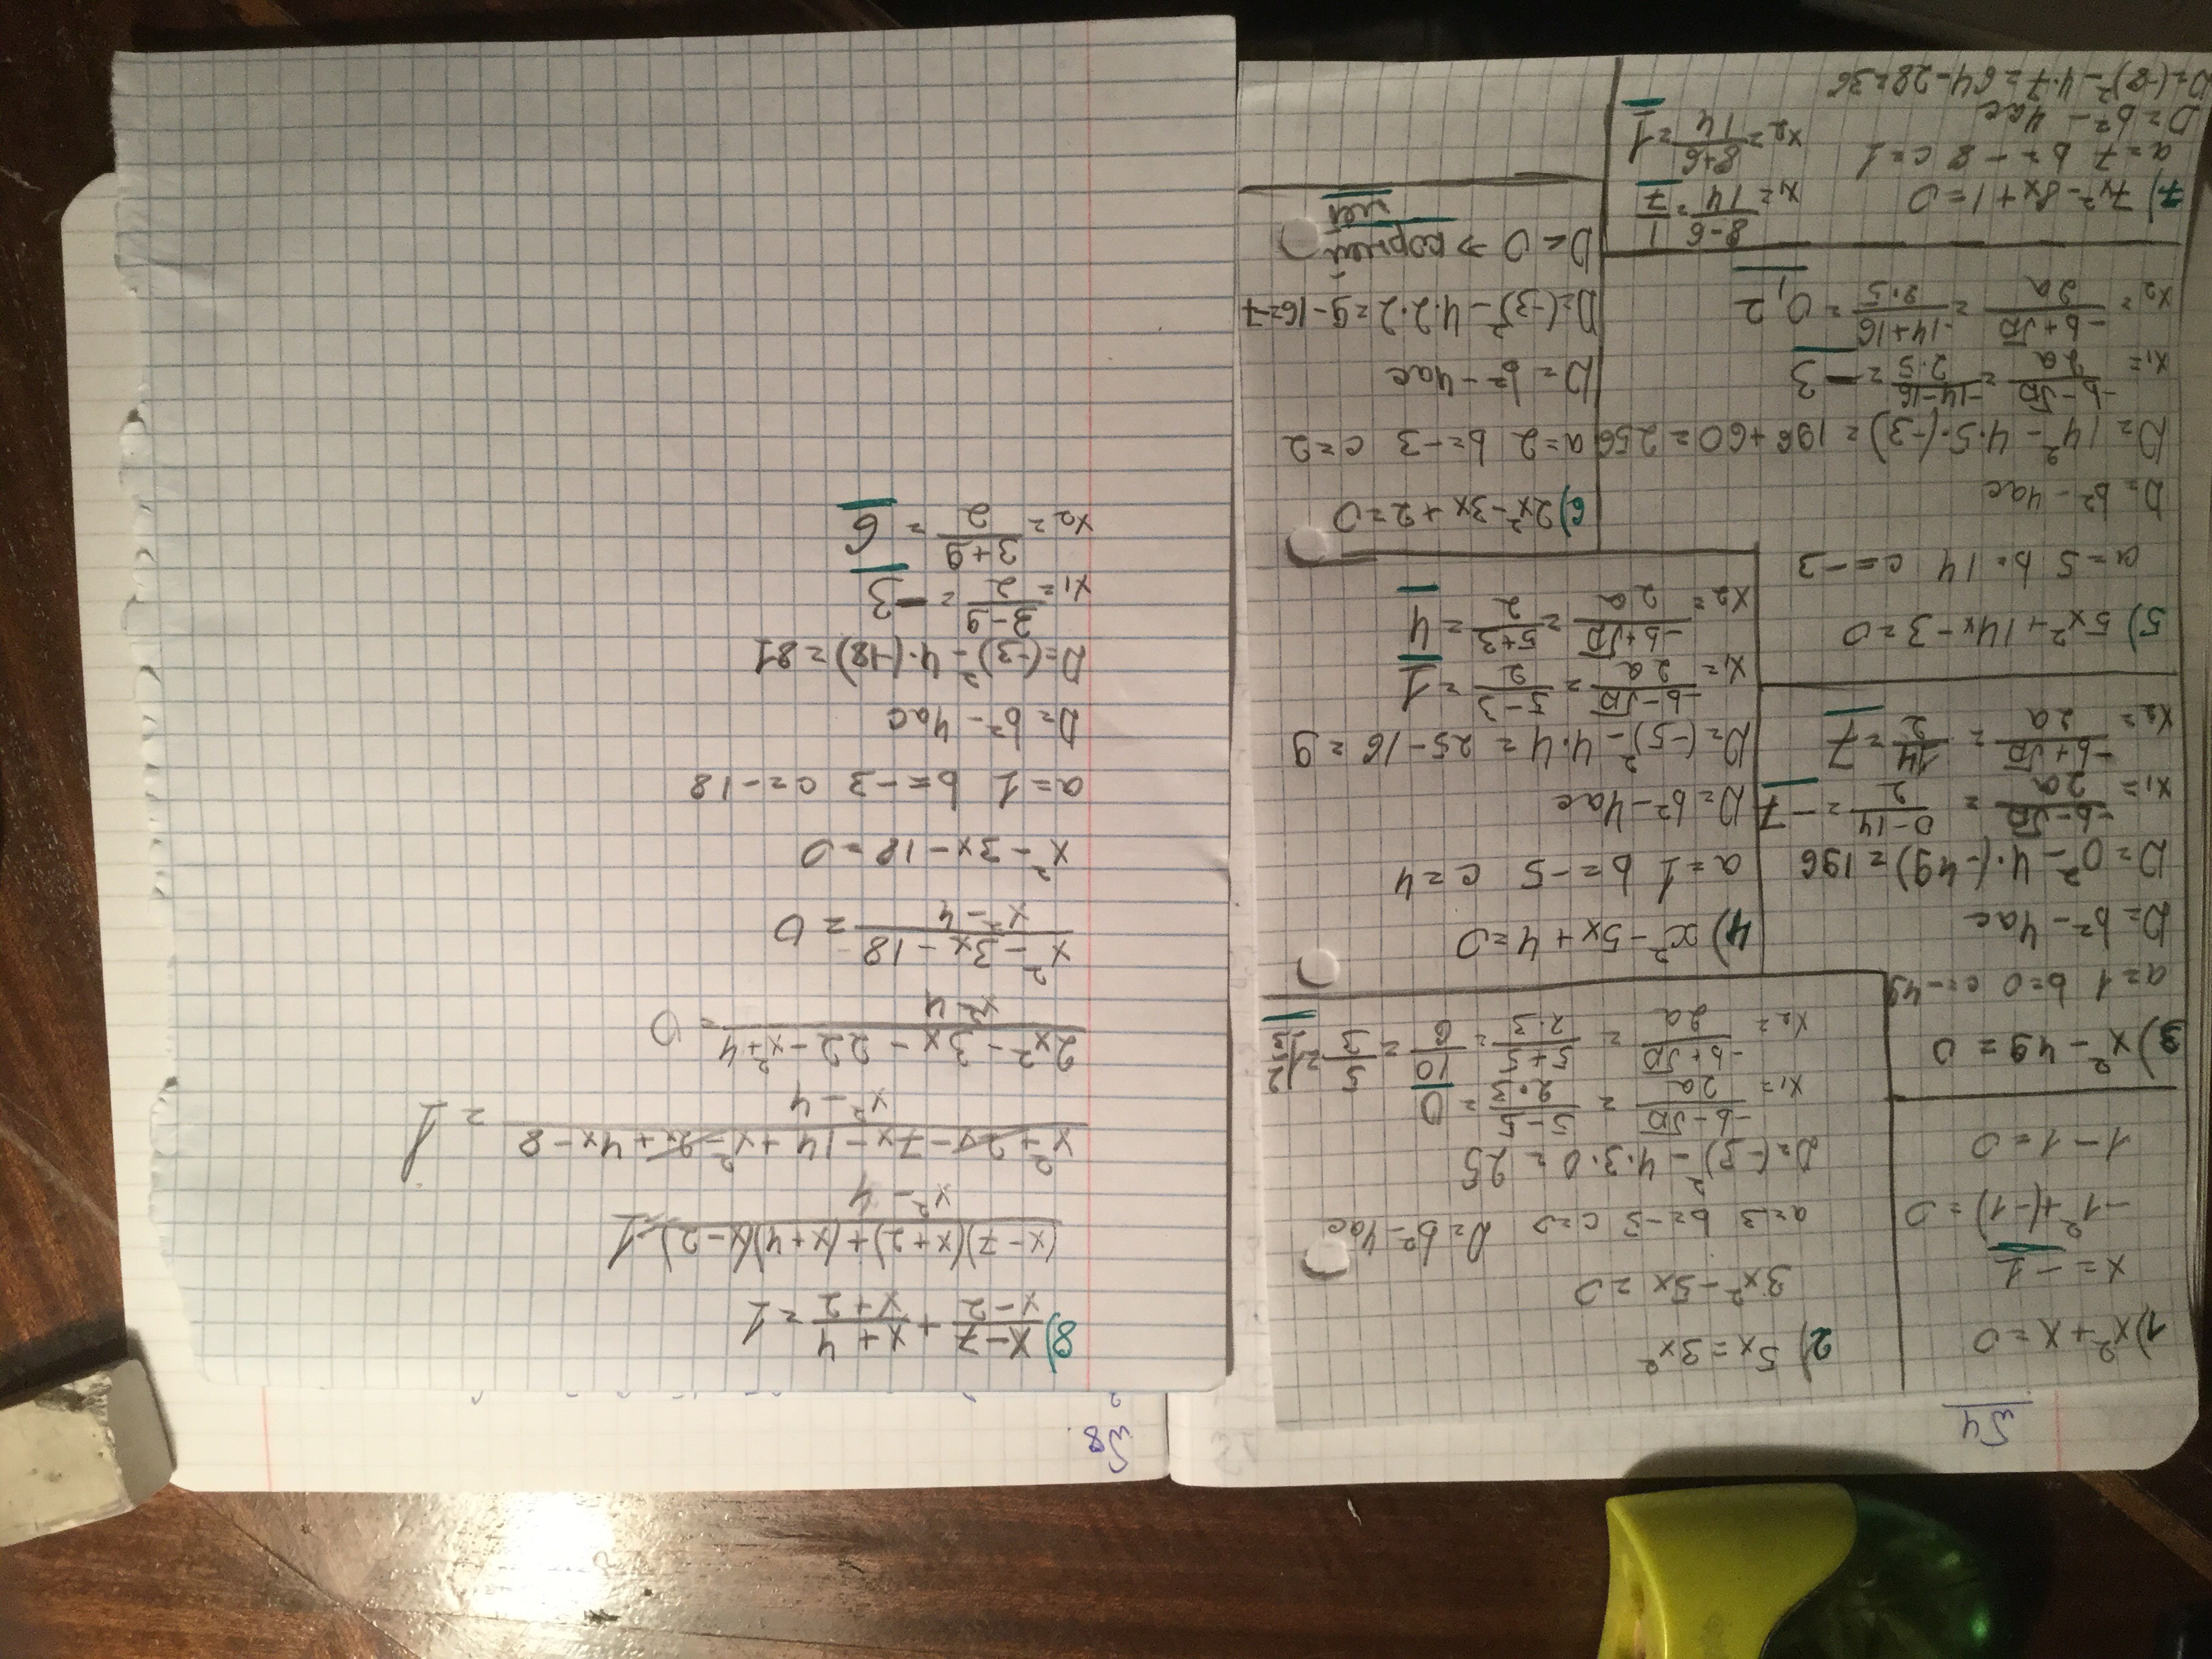 S4
1) x²+x=0
x=-1
-1²+(-1)=0
1-1=0
2) 5x=3x²
3x²-5x=0
a=3 b=-5 c=0 D=b²-4ac
D=(-5)²-4·3·0=25
x₁=(-b-√D)/2a=(5-5)/2·3=0
x₂=(-b+√D)/2a=(5+5)/2·3=10/6=5/3=1 2/3
3) x²-49=0
a=1 b=0 c=-49
D=b²-4ac
D=0²-4·(-49)=196
x₁=(-b-√D)/2a=(0-14)/2=-7
x₂=(-b+√D)/2a=14/2=7
4) x²-5x+4=0
a=1 b=-5 c=4
D=b²-4ac
D=(-5)²-4·4=25-16=9
x₁=(-b-√D)/2a=(5-3)/2=1
x₂=(-b+√D)/2a=(5+3)/2=4
5) 5x²+14x-3=0
a=5 b=14 c=-3
D=b²-4ac
D=14²-4·5·(-3)=196+60=256
x₁=(-b-√D)/2a=(-14-16)/2·5=-3
x₂=(-b+√D)/2a=(-14+16)/2·5=0,2
6) 2x²-3x+2=0
a=2 b=-3 c=2
D=b²-4ac
D=(-3)²-4·2·2=9-16=-7
D<0 ⇒ корней
нет
7) 7x²-8x+1=0
a=7 b=-8 c=1
D=b²-4ac
D=(-8)²-4·7=64-28=36
x₁=(8-6)/14=1/7
x₂=(8+6)/14=1
S8.
8) (x-7)/(x-2)+(x+4)/(x+2)=1
((x-7)(x+2)+(x+4)(x-2))/(x²-4)=1
(x²+2x-7x-14+x²-2x+4x-8)/(x²-4)=1
(2x²-3x-22-x²+4)/(x²-4)=0
(x²-3x-18)/(x²-4)=0
x²-3x-18=0
a=1 b=-3 c=-18
D=b²-4ac
D=(-3)²-4·(-18)=81
x₁=(3-9)/2=-3
x₂=(3+9)/2=6